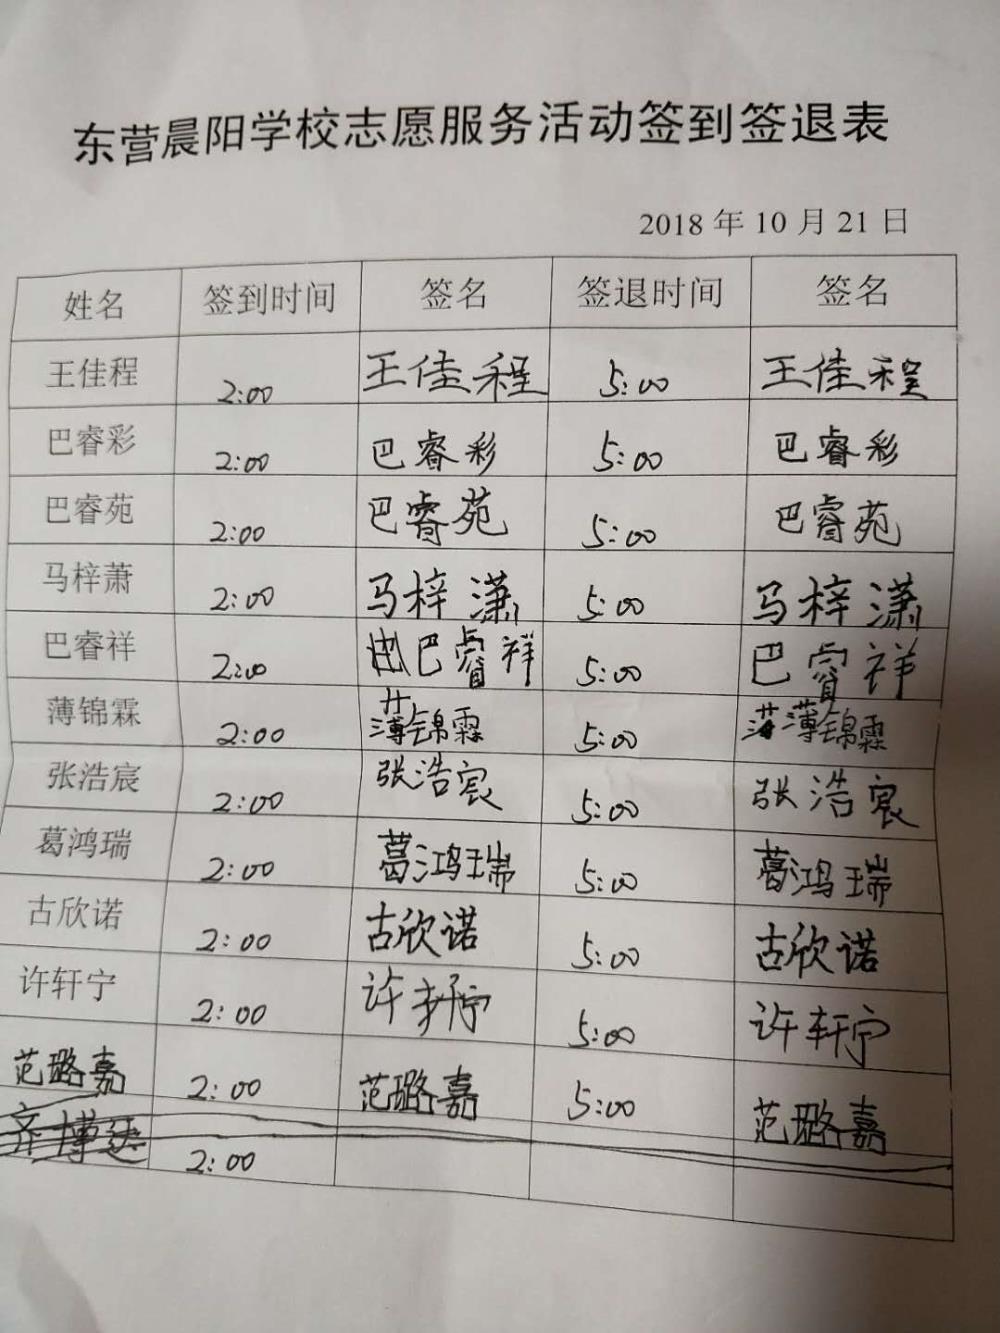 东营晨阳学校志愿服务活动签到签退表
2018 年 10 月 21 日
姓名 签到时间 签名 签退时间 签名
王佳程 2:00 王佳程 5:00 王佳程
巴睿彩 2:00 巴睿彩 5:00 巴睿彩
巴睿苑 2:00 巴睿苑 5:00 巴睿苑
马梓萧 2:00 马梓潇 5:00 马梓潇
巴睿祥 2:00 巴睿祥 5:00 巴睿祥
薄锦霖 2:00 薄锦霖 5:00 薄锦霖
张浩宸 2:00 张浩宸 5:00 张浩宸
葛鸿瑞 2:00 葛鸿瑞 5:00 葛鸿瑞
古欣诺 2:00 古欣诺 5:00 古欣诺
许轩宁 2:00 许轩宁 5:00 许轩宁
范璐嘉 2:00 范璐嘉 5:00 范璐嘉
2:00